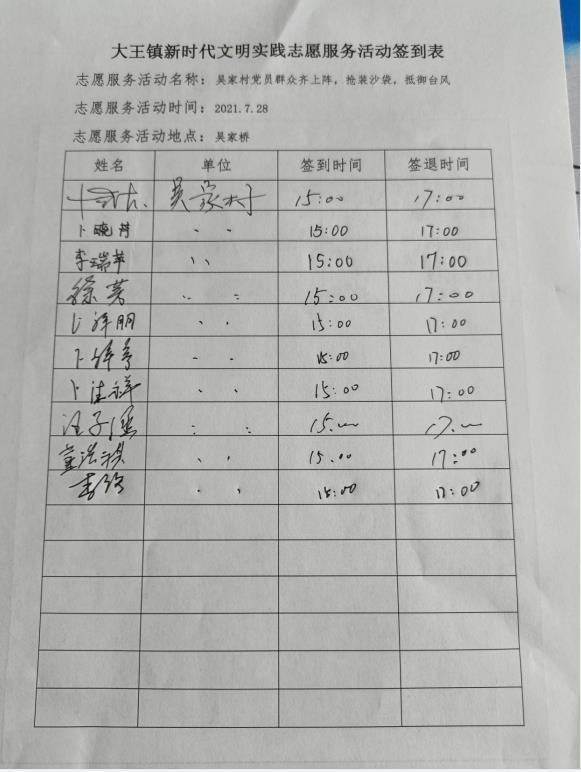 大王镇新时代文明实践志愿服务活动签到表
志愿服务活动名称：吴家村党员群众齐上阵，抢装沙袋，抵御台风
志愿服务活动时间：2021.7.28
志愿服务活动地点：吴家桥
姓名 单位 签到时间 签退时间
吴家村 15:00 17:00
卜晓 〃 15:00 17:00
李瑞苹 〃 15:00 17:00
徐芳 〃 15:00 17:00
朋 〃 15:00 17:00
卜 〃 15:00 17:00
卜佳祥 〃 15:00 17:00
汪子 〃 15.00 17.00
董浩 〃 15.00 17:00
李 〃 15:00 17:00